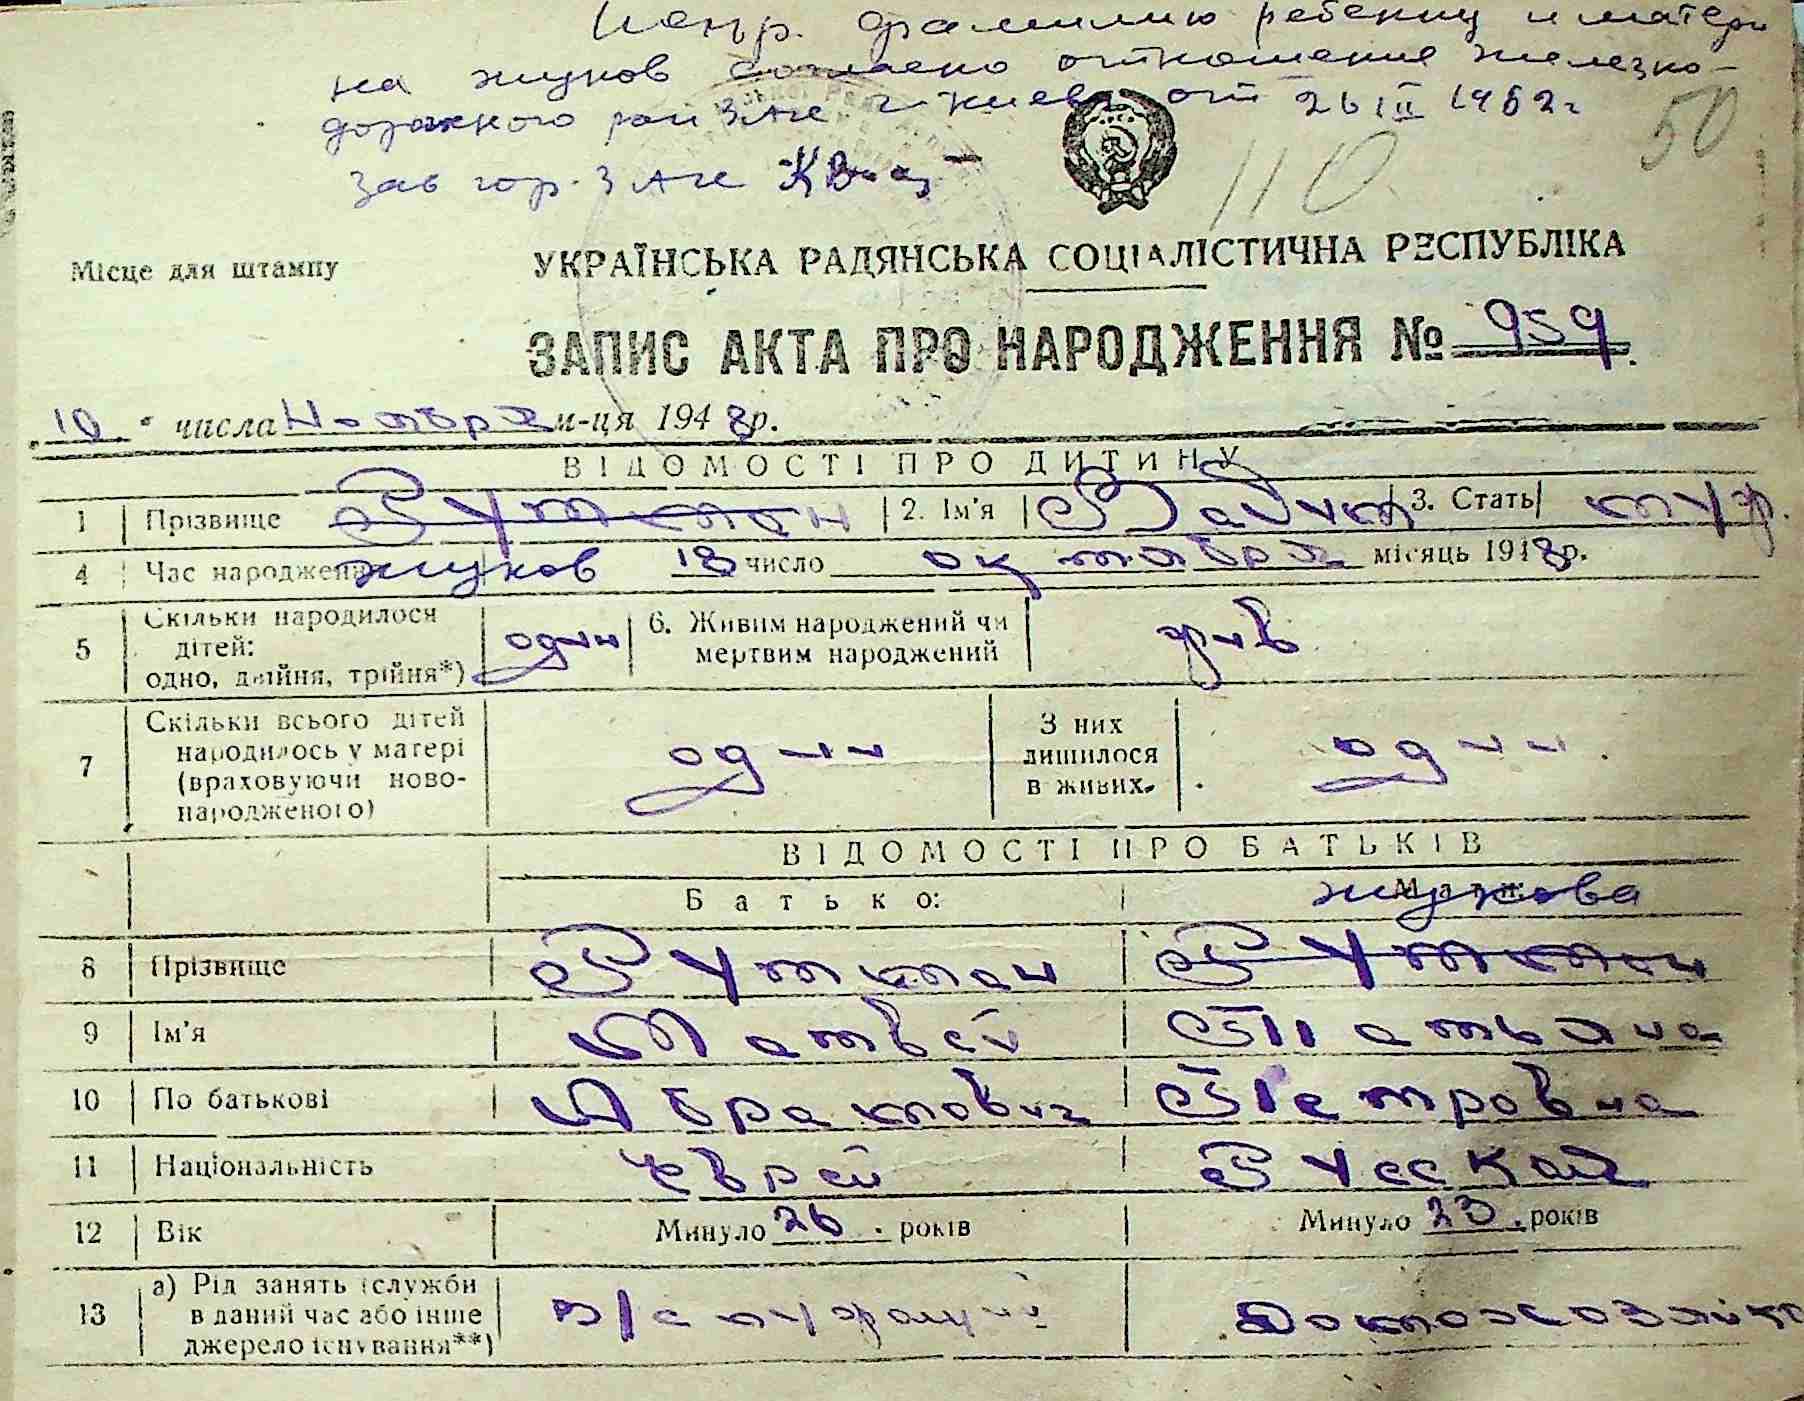 Испр. фамилию ребенку и матери
на Жуков согласно отношения железно-
дорожного рай ЗАГС г. Киева от 26 III 1952 г
50
110
зав гор. ЗАГС
Місце для штампу
УКРАЇНСЬКА РАДЯНСЬКА СОЦІАЛІСТИЧНА РЕСПУБЛІКА
ЗАПИС АКТА ПРО НАРОДЖЕННЯ № 959
"10" числа Ноября м-ця 1948 р.
ВІДОМОСТІ ПРО ДИТИНУ
1 Прізвище Рутман 2. Ім'я Вадим 3. Стать муж.
4 Час народження Жуков 18 число октября місяць 1948 р.
5 Скільки народилося дітей: одно, двійня, трійня*) один 6. Живим народжений чи мертвим народжений жив
7 Скільки всього дітей народилось у матері (враховуючи ново-народженого) один З них лишилося в живих. один
ВІДОМОСТІ ПРО БАТЬКІВ
Батько: Мати: Жукова
8 Прізвище Рутман Рутман
9 Ім'я Матвей Татьяна
10 По батькові Абрамович Петровна
11 Національність Еврей Русская
12 Вік Минуло 26 років Минуло 23 років
13 а) Рід занять (служби
в даний час або інше
джерело існування**) В/служащий Домохозяйка